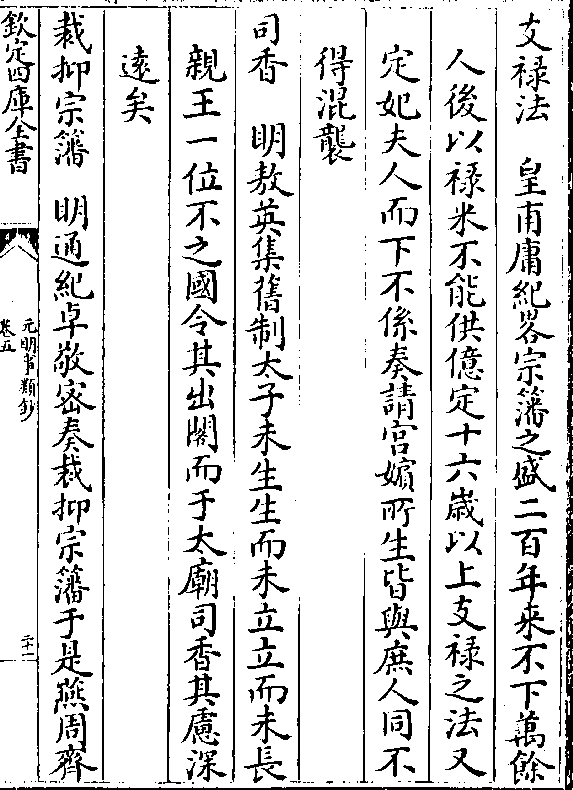 支禄法　皇甫庸紀畧宗藩之盛二百年来不下萬餘
人後以禄米不能供億定十六歳以上支禄之法又
定妃夫人而下不係奏請宫嬪所生皆與庶人同不
得混襲
司香　明敖英集舊制太子未生生而未立立而未長
親王一位不之國令其出閣而于太廟司香其慮深
遠矣
裁抑宗藩　明通紀卓敬密奏裁抑宗藩于是燕周齊
欽定四庫全書
元明事類鈔
卷五
二十一